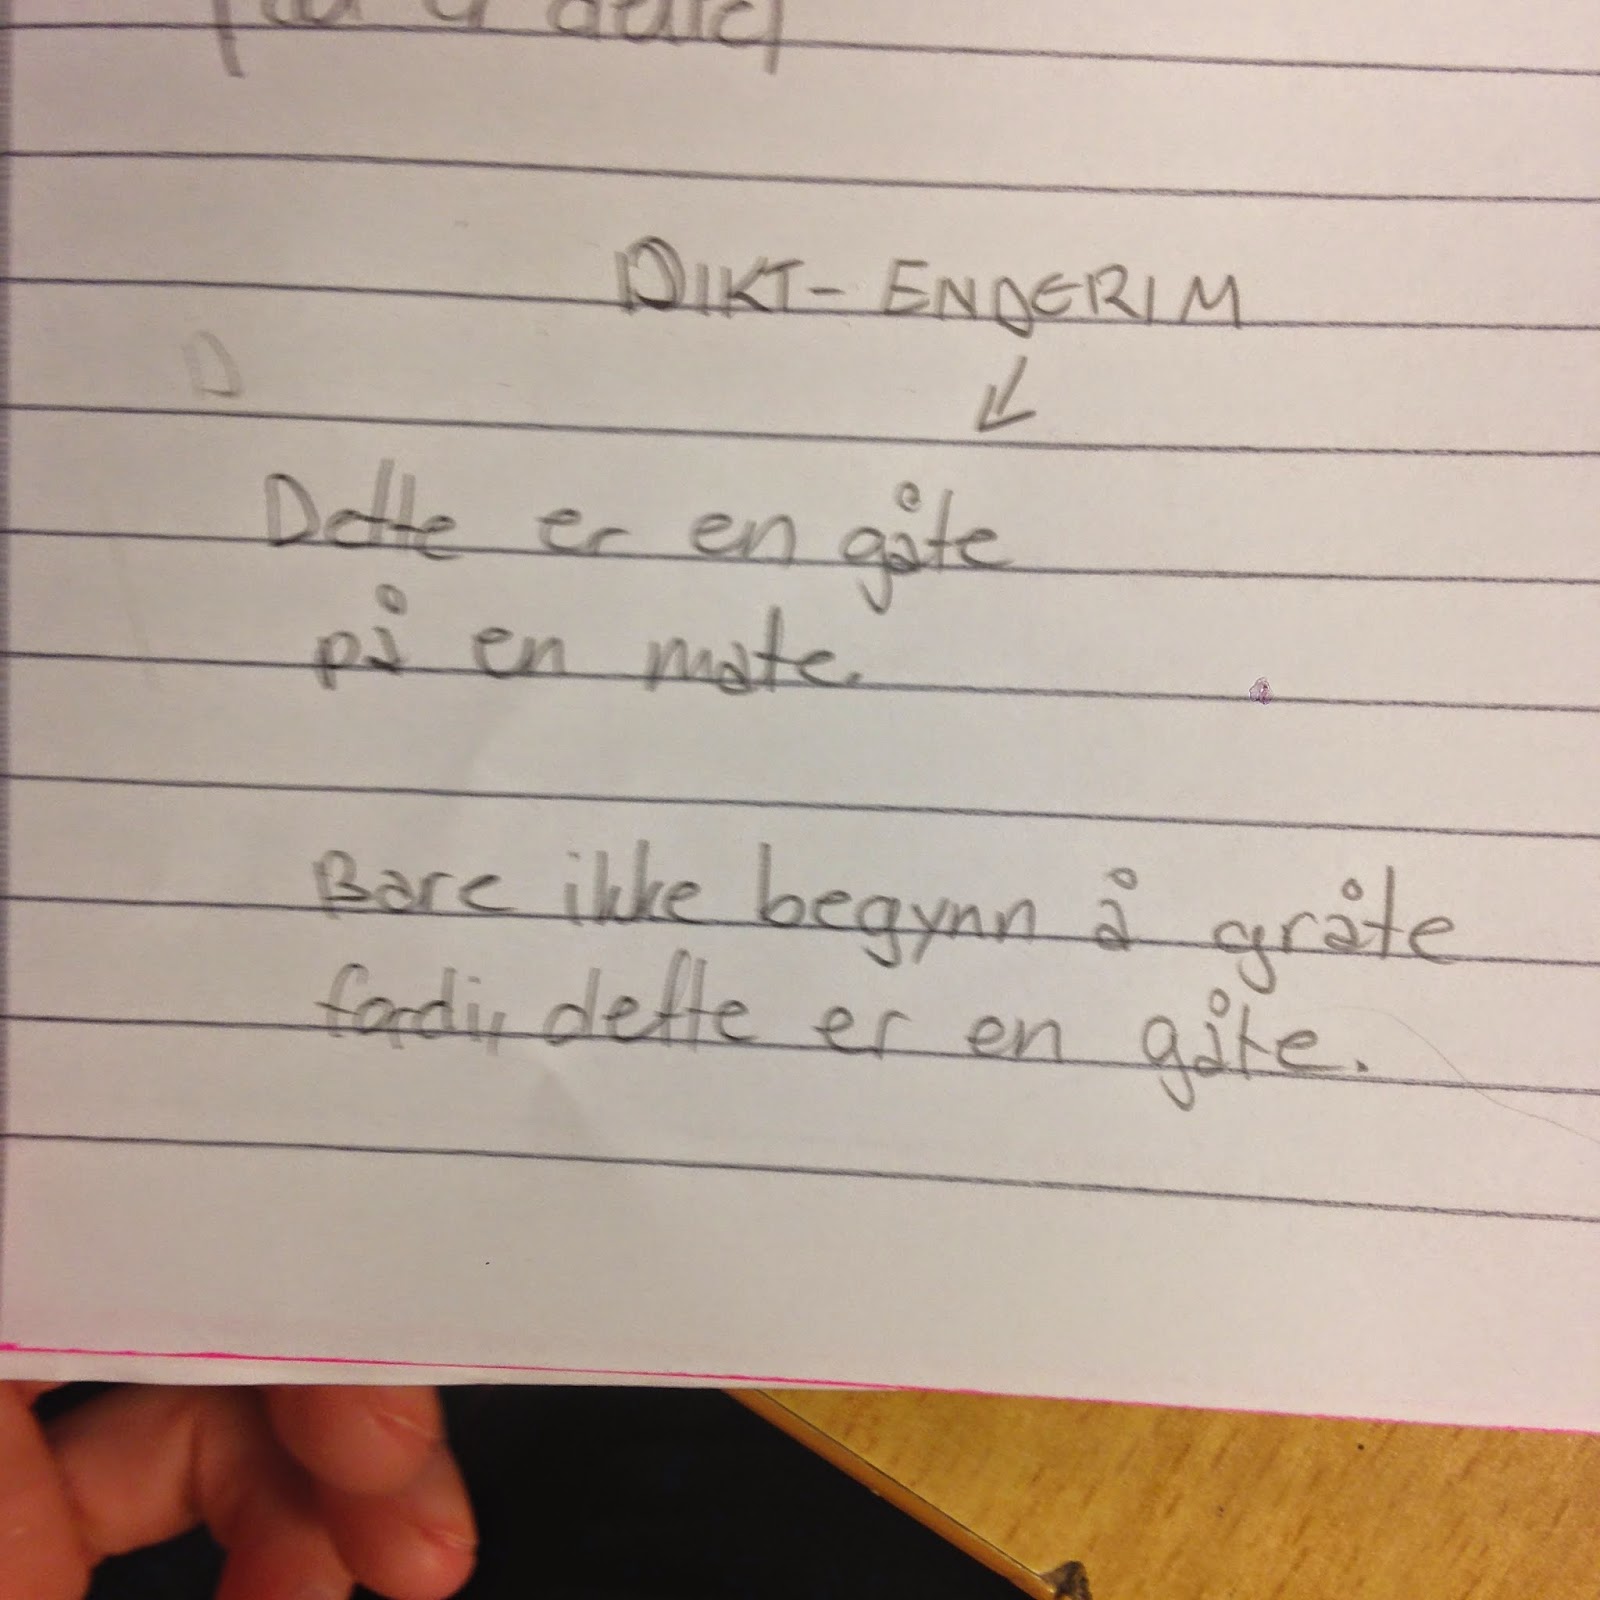 DIKT - ENDERIM
Dette er en gåte
på en mate.
Bare ikke begynn å gråte
fordi, dette er en gåte.